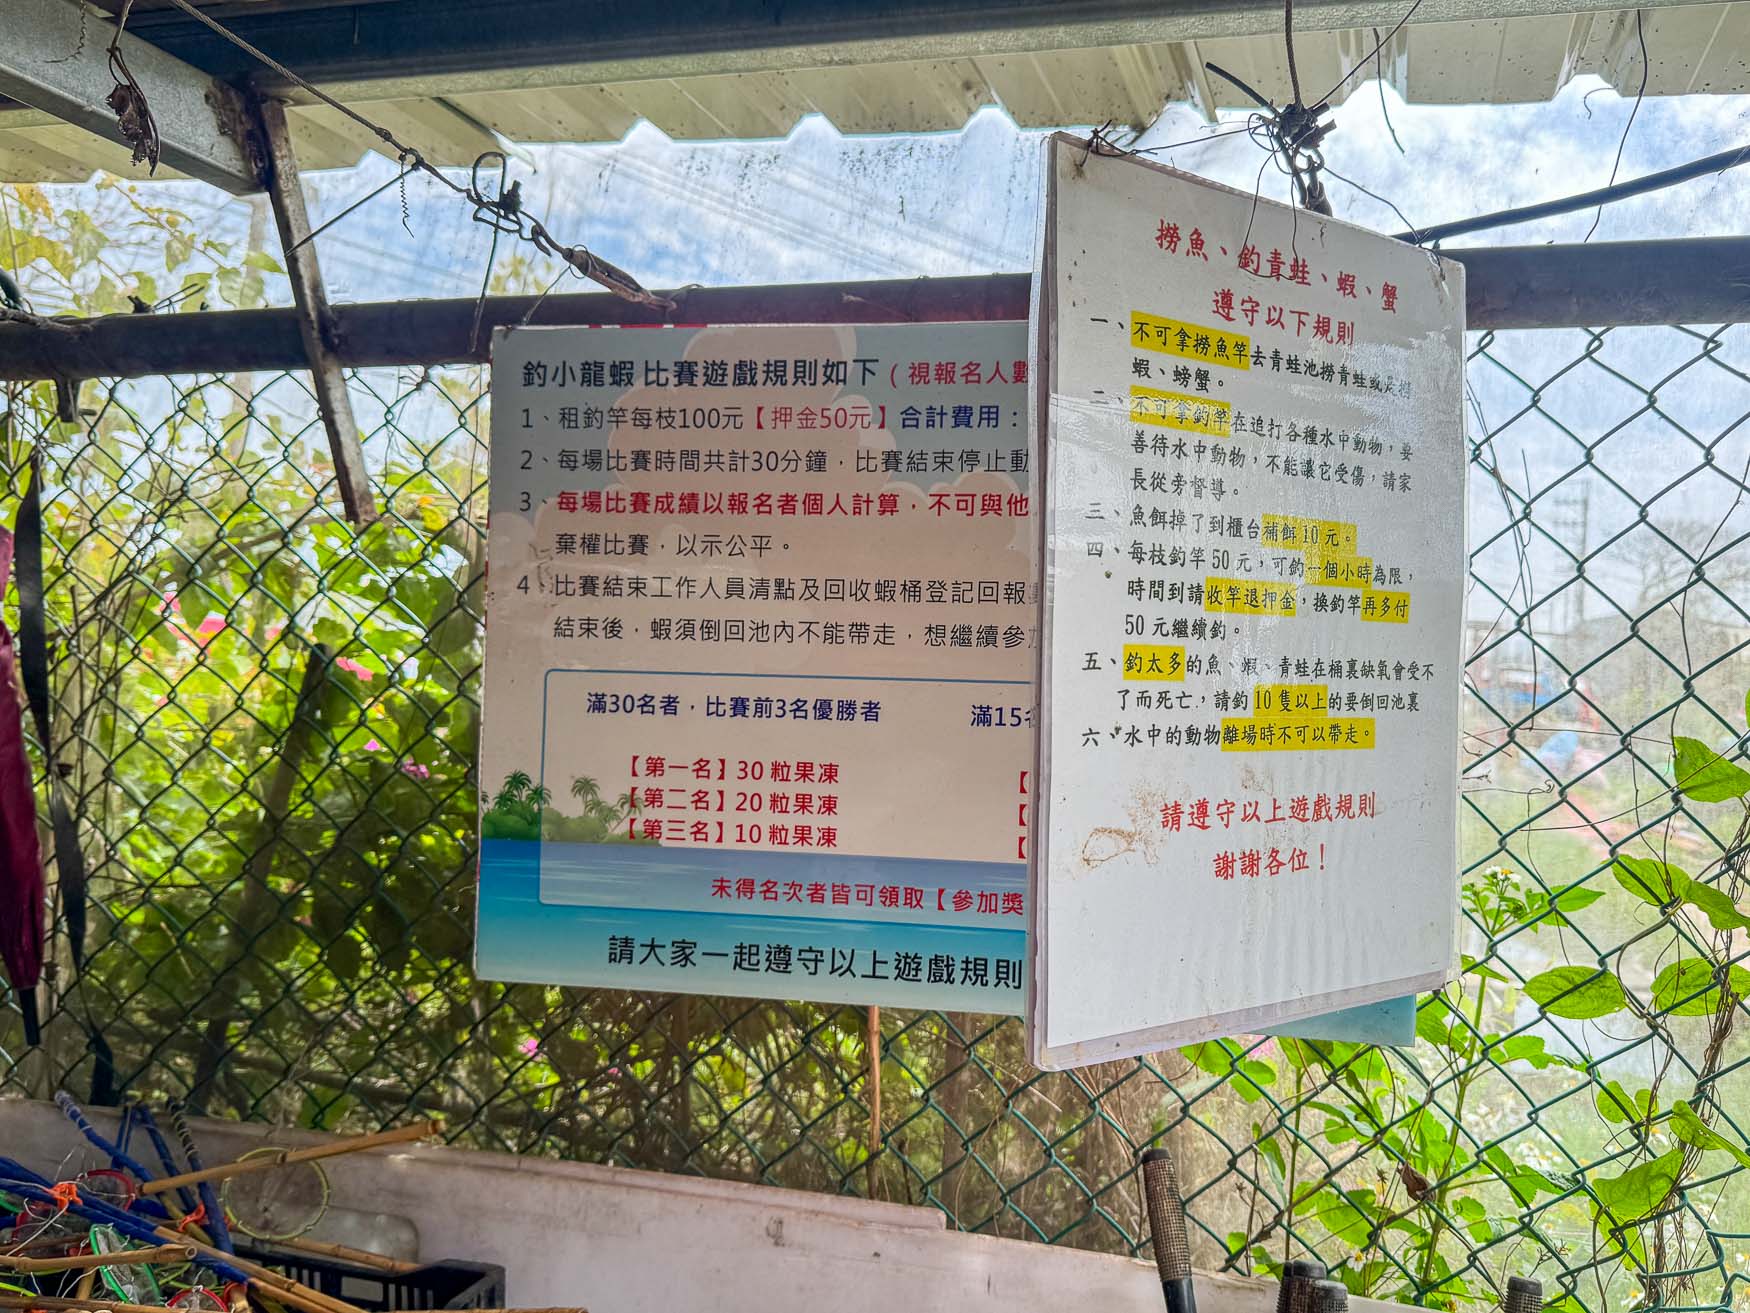 釣小龍蝦 比賽遊戲規則如下（視報名人數
1、租釣竿每枝100元【押金50元】合計費用：
2、每場比賽時間共計30分鐘，比賽結束停止動
3、每場比賽成績以報名者個人計算，不可與他
棄權比賽，以示公平。
4、比賽結束工作人員清點及回收蝦桶登記回報
結束後，蝦須倒回池內不能帶走，想繼續參
滿30名者，比賽前3名優勝者
滿15
【第一名】30 粒果凍
【第二名】20 粒果凍
【第三名】10 粒果凍
未得名次者皆可領取【參加獎
請大家一起遵守以上遊戲規則
撈魚、釣青蛙、蝦、蟹
遵守以下規則
一、不可拿撈魚竿去青蛙池撈青蛙或是撈
蝦、螃蟹。
二、不可拿釣竿在追打各種水中動物，要
善待水中動物，不能讓它受傷，請家
長從旁督導。
三、魚餌掉了到櫃台補餌10元。
四、每枝釣竿50元，可釣一個小時為限，
時間到請收竿退押金，換釣竿再多付
50元繼續釣。
五、釣太多的魚、蝦、青蛙在桶裏缺氧會受不
了而死亡，請釣10隻以上的要倒回池裏
六、水中的動物離場時不可以帶走。
請遵守以上遊戲規則
謝謝各位！